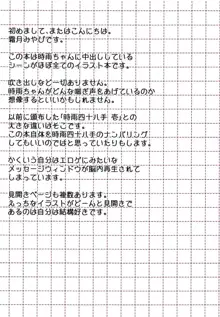 初めまして、またはこんにちは。
霜月みやびです。
この本は時雨ちゃんに中出ししている
シーンがほぼ全てのイラスト本です。
吹き出しなど一切ありません。
時雨ちゃんがどんな喘ぎ声をあげているのか
想像するといいかもしれません。
以前に頒布した「時雨四十八手 壱」との
大きな違いはもそこです。
この本自体を時雨四十八手のナンバリング
してもいいのではと思っていたりもします。
かくいう自分はエロゲにみたいな
メッセージウィンドウが脳内再生されて
しまっています。
見開きページも複数あります。
えっちなイラストがどーんと見開きで
あるのは自分は結構好きです。